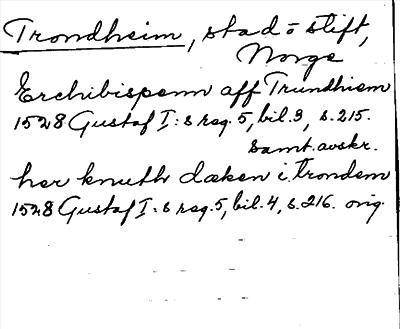 Trondheim, stad o stift,
Norge
Erchibispenn aff Trundhiem
1528 Gustaf I:s reg. 5, bil. 3, s. 215.
samt. avskr.
her knuth daken i trondem
1528 Gustaf I:s reg. 5, bil. 4, s. 216. orig.